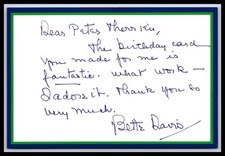 Dear Peter
The birthday card
you made for me is
fantastic. What work –
I adore it. Thank you so
very much.
Bette Davis